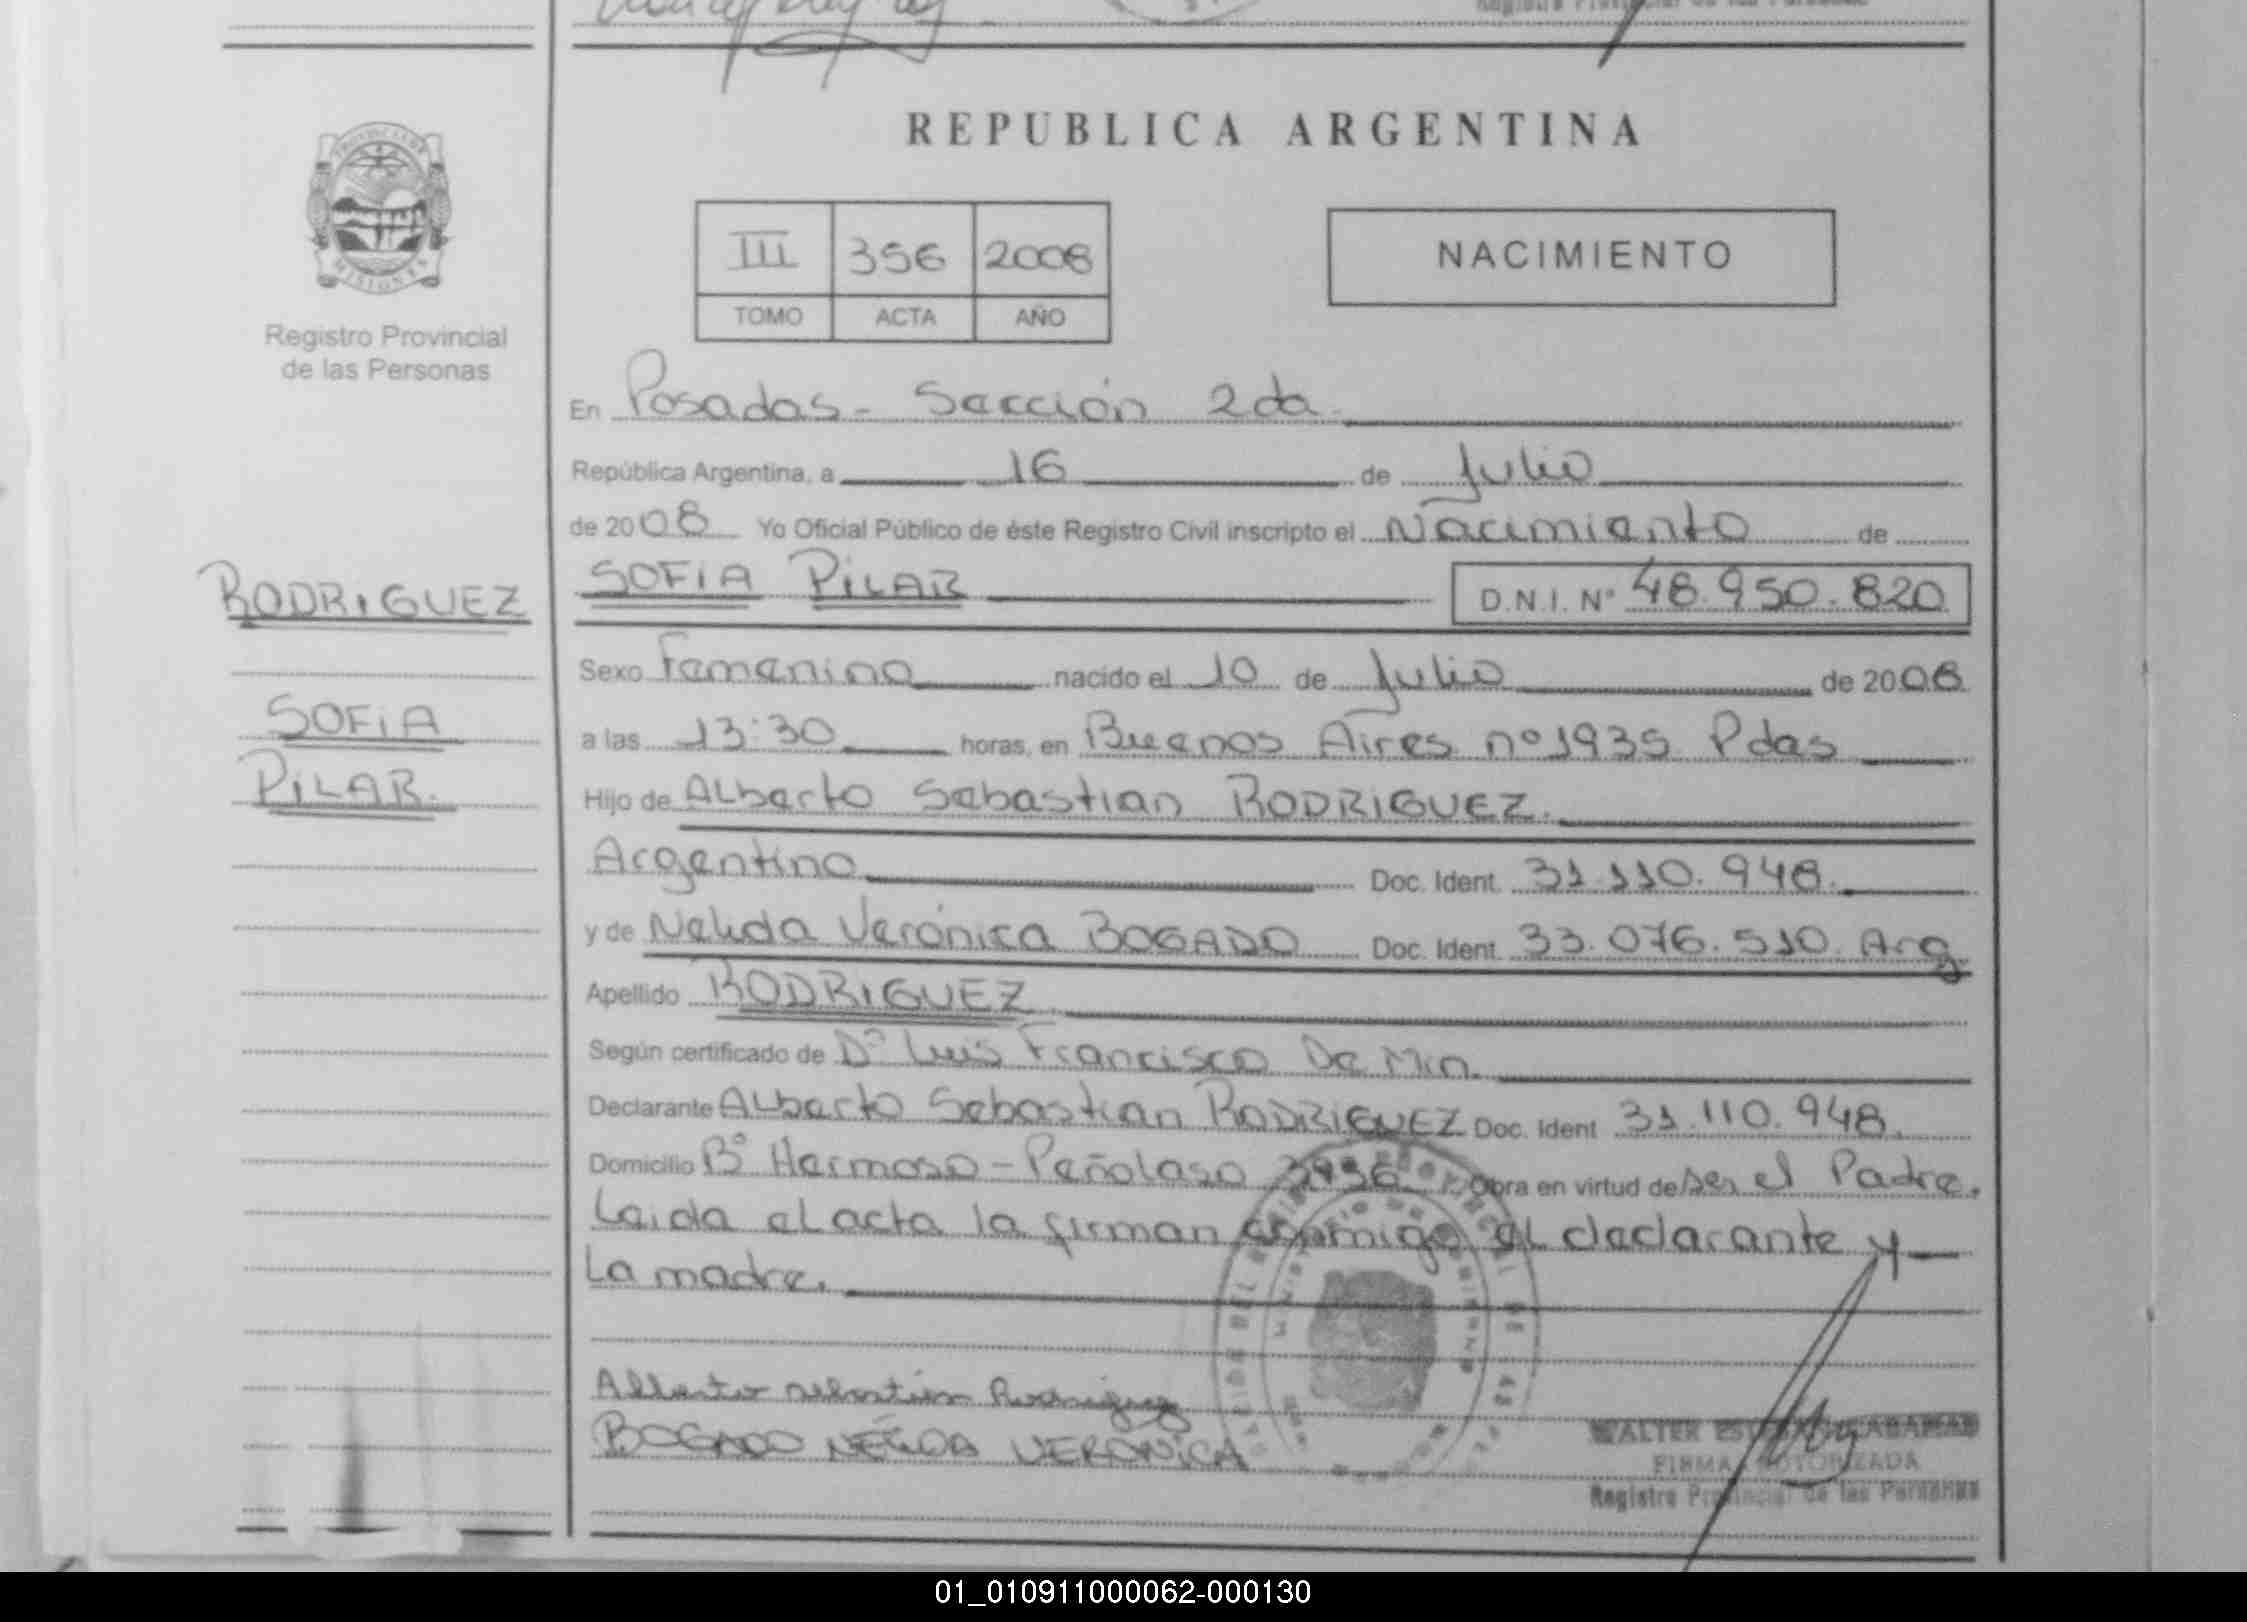 REPUBLICA ARGENTINA
PROVINCIA DE
MISIONES
Registro Provincial
de las Personas
III 356 2008
TOMO ACTA AÑO
NACIMIENTO
En Posadas - Sección 2da
República Argentina, a 16 de Julio
de 2008 Yo Oficial Público de éste Registro Civil inscripto el Nacimiento de
RODRIGUEZ
SOFIA
PILAR.
SOFIA PILAR D.N.I. Nº 48.950.820
Sexo Femenino nacido el 10 de Julio de 2008
a las 13:30 horas, en Buenos Aires nº 1935 Pdas
Hijo de Alberto Sebastian RODRIGUEZ.
Argentino Doc. Ident. 31.110.948.
y de Nelida Verónica BOGADO Doc. Ident. 33.076.510. Arg
Apellido RODRIGUEZ
Según certificado de Dº Luis Francisco De Min.
Declarante Alberto Sebastian RODRIGUEZ Doc. Ident 31.110.948.
Domicilio Bº Hermoso - Peñoloso Obra en virtud de ser el Padre.
Leida el acta la firman conmigo el declarante y
La madre.
Alberto Sebastián Rodriguez
BOGADO NÉLIDA VERONICA
WALTER
FIRMA AUTORIZADA
Registro Provincial de las Personas
01_010911000062-000130